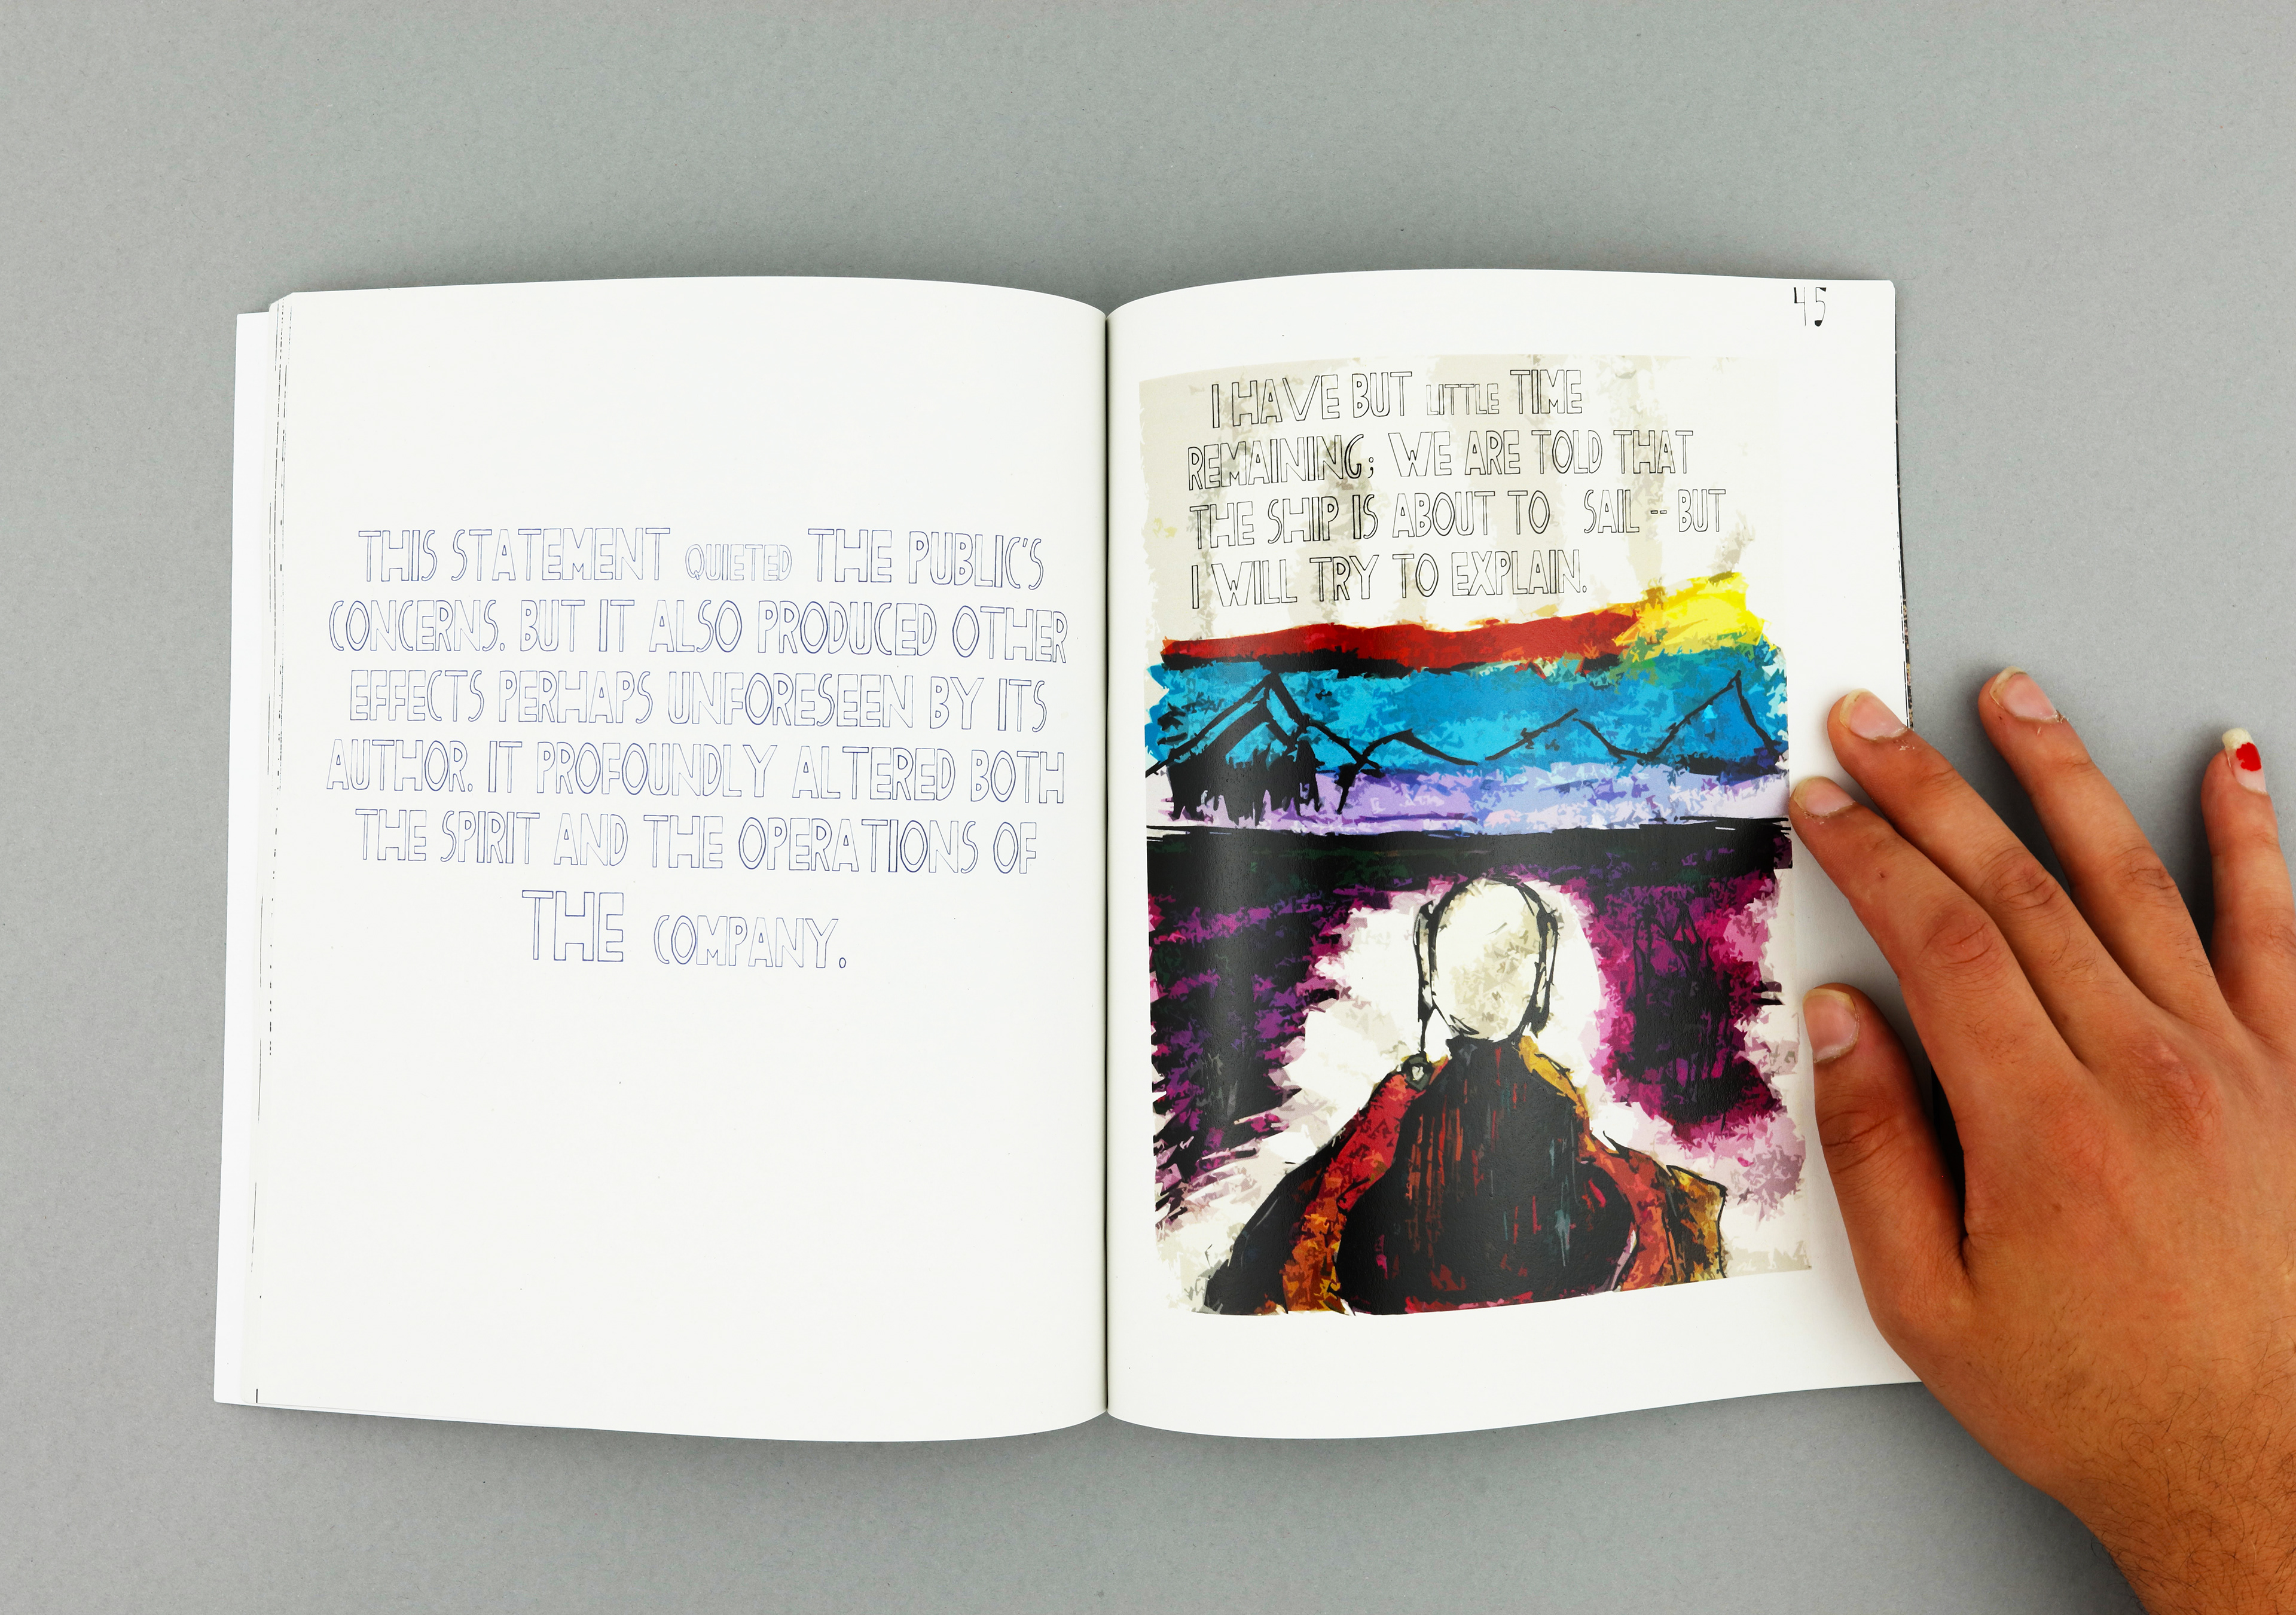 THIS STATEMENT QUIETED THE PUBLIC'S
CONCERNS. BUT IT ALSO PRODUCED OTHER
EFFECTS PERHAPS UNFORESEEN BY ITS
AUTHOR. IT PROFOUNDLY ALTERED BOTH
THE SPIRIT AND THE OPERATIONS OF
THE COMPANY.
45
I HAVE BUT LITTLE TIME
REMAINING; WE ARE TOLD THAT
THE SHIP IS ABOUT TO SAIL -- BUT
I WILL TRY TO EXPLAIN.